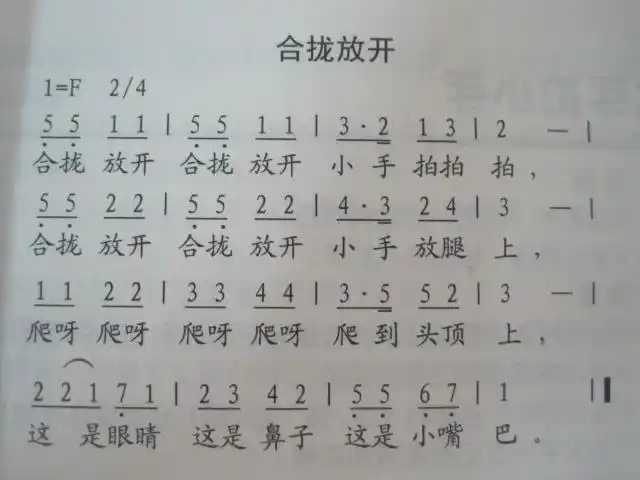 合拢放开
1=F 2/4
5 5 1 1 | 5 5 1 1 | 3 · 2 1 3 | 2 — |
合拢 放开 合拢 放开 小 手 拍拍 拍，
5 5 2 2 | 5 5 2 2 | 4 · 3 2 4 | 3 — |
合拢 放开 合拢 放开 小 手 放腿 上，
1 1 2 2 | 3 3 4 4 | 3 · 5 5 2 | 3 — |
爬呀 爬呀 爬呀 爬呀 爬 到 头顶 上，
2 2 1 7 1 | 2 3 4 2 | 5 5 6 7 | 1 ||
这 是眼睛 这是 鼻子 这是 小嘴 巴。